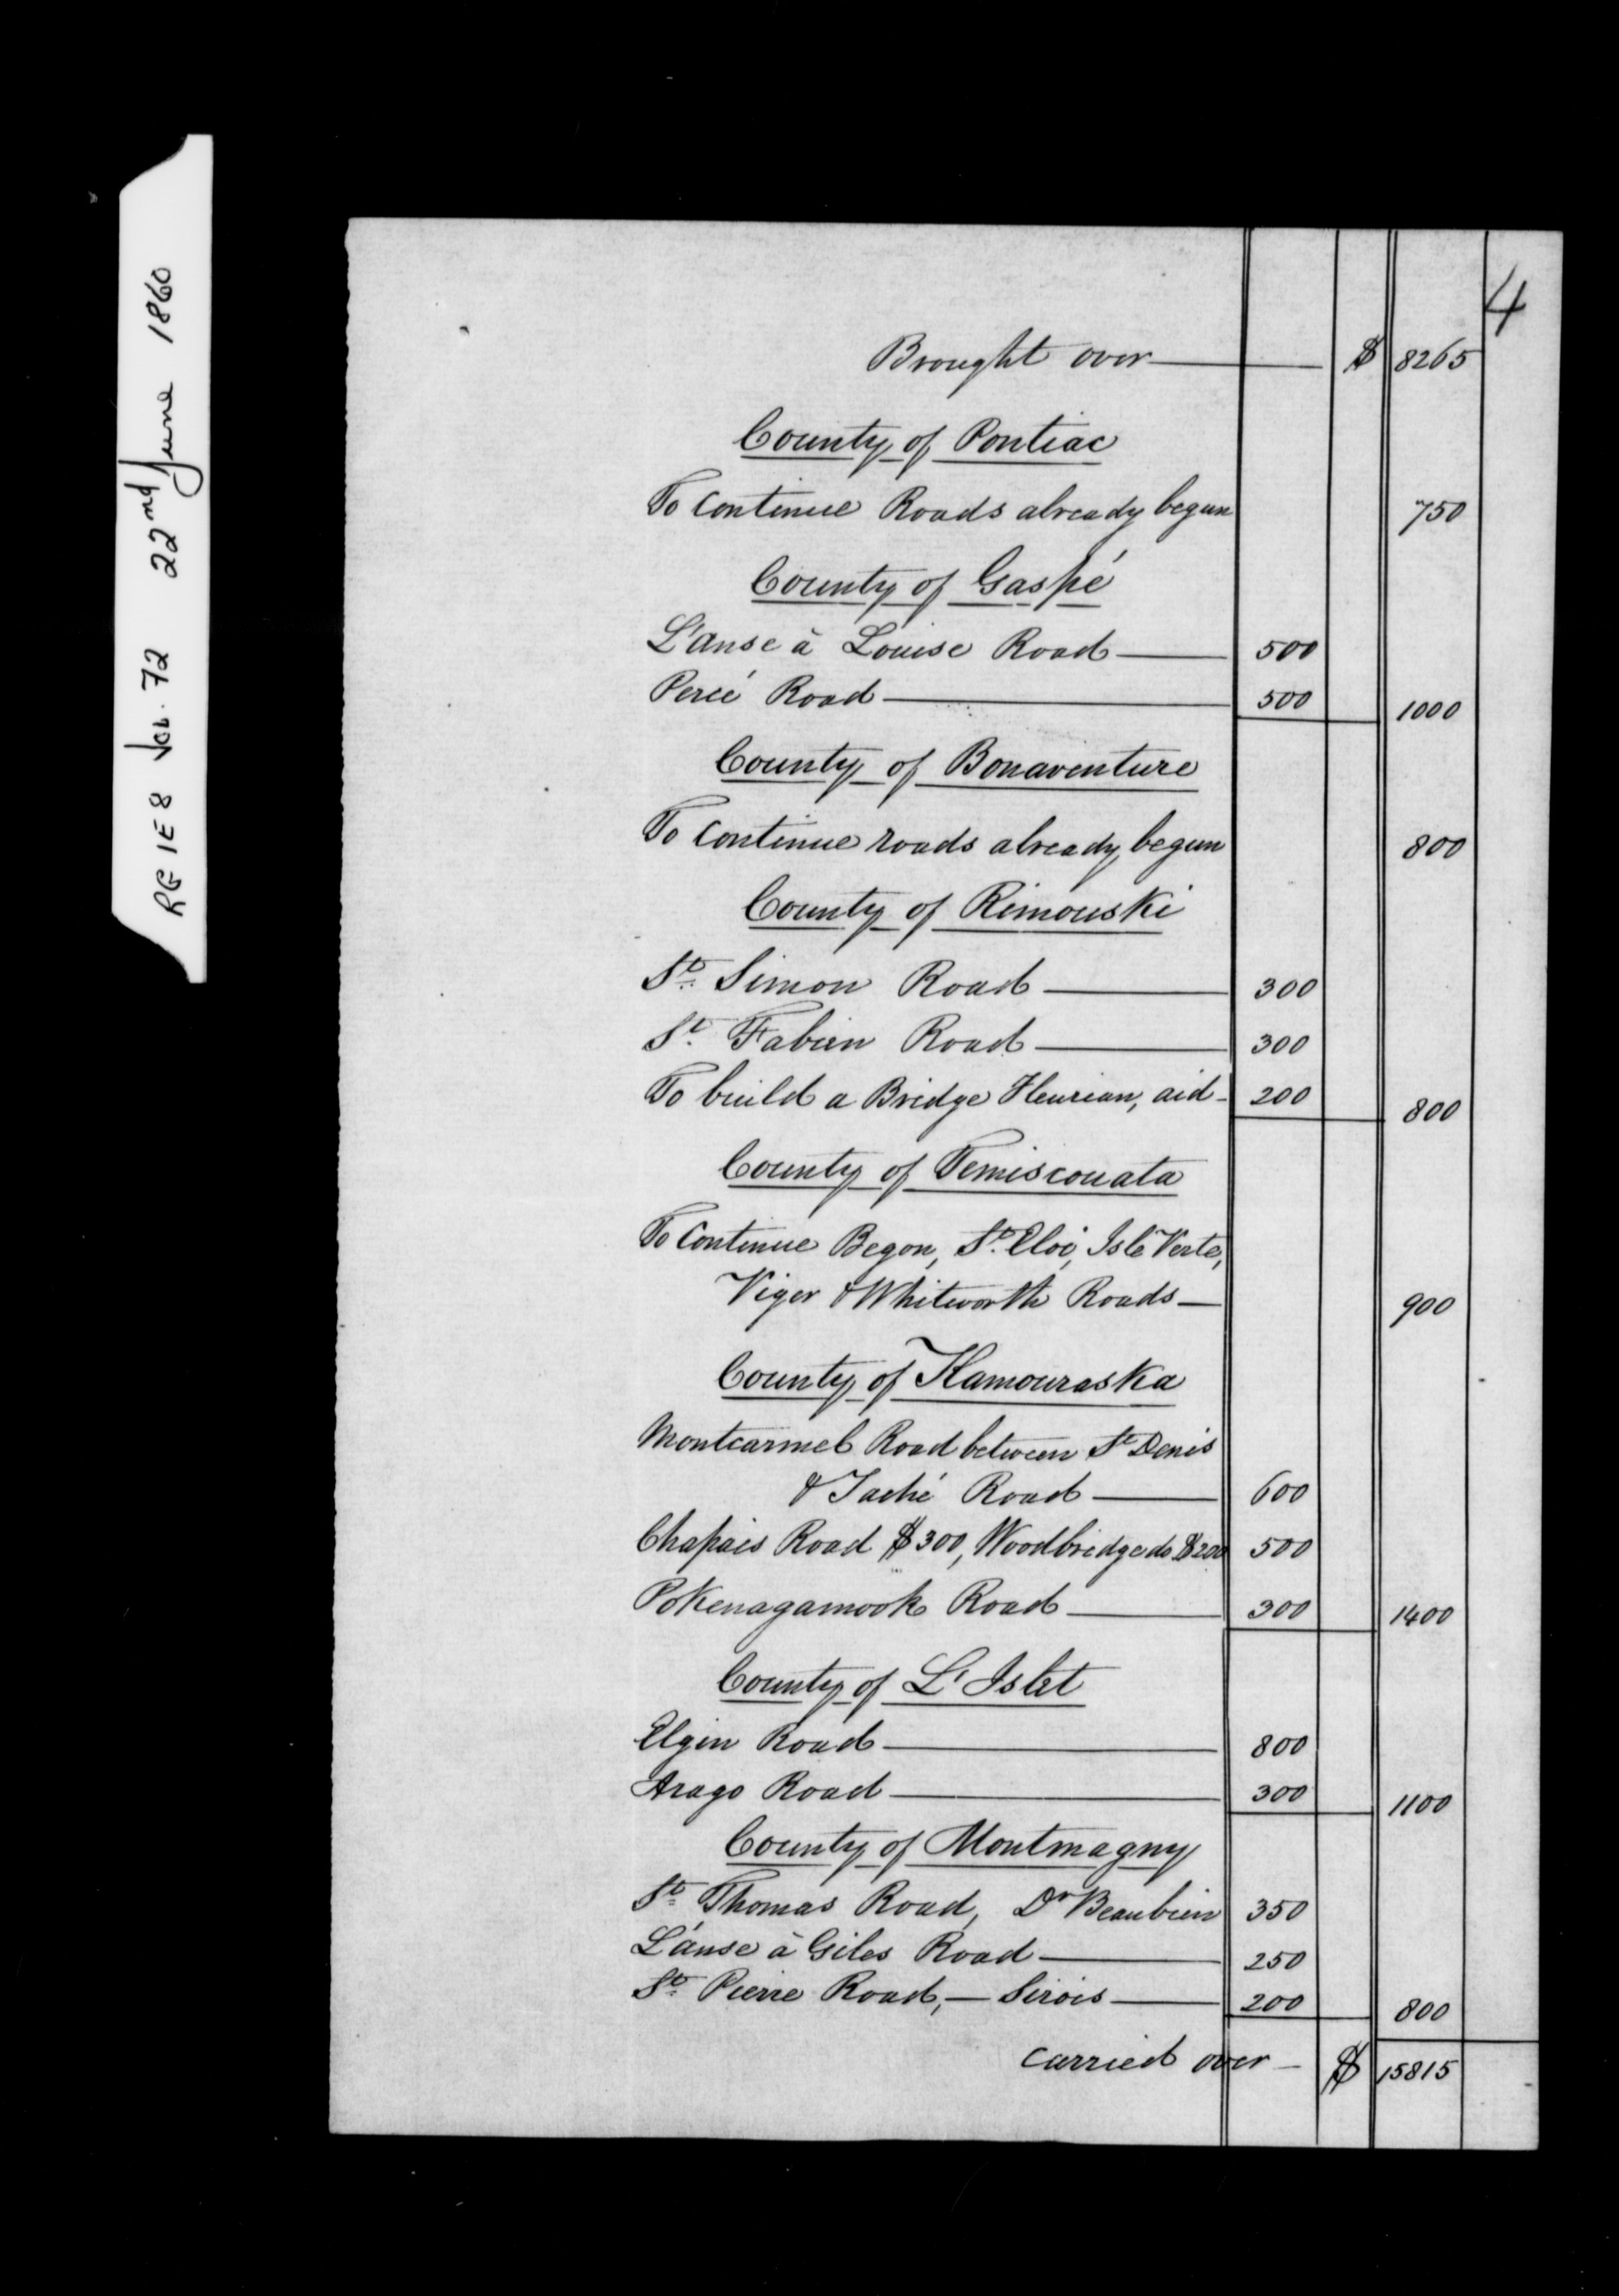 RG 1 E 8 Vol. 72 22nd June 1860
4
Brought over — $ 8265
County of Pontiac
To continue Roads already begun 750
County of Gaspé
L'anse à Louise Road — 500
Percé Road — 500 1000
County of Bonaventure
To continue roads already begun 800
County of Rimouski
St. Simon Road — 300
St. Fabien Road — 300
To build a Bridge Fleurian, aid - 200 800
County of Temiscouata
To continue Begon, St. Eloi, Isle Verte,
Viger & Whitworth Roads — 900
County of Kamouraska
Montcarmel Road between St Denis
& Taché Road — 600
Chapais Road $300, Woodbridge do $200 500
Pokenagamook Road — 300 1400
County of L'Islet
Elgin Road — 800
Arago Road — 300 1100
County of Montmagny
St. Thomas Road, Dr Beaubien 350
L'anse à Giles Road — 250
St. Pierre Road, — Sirois — 200 800
carried over — $ 15815